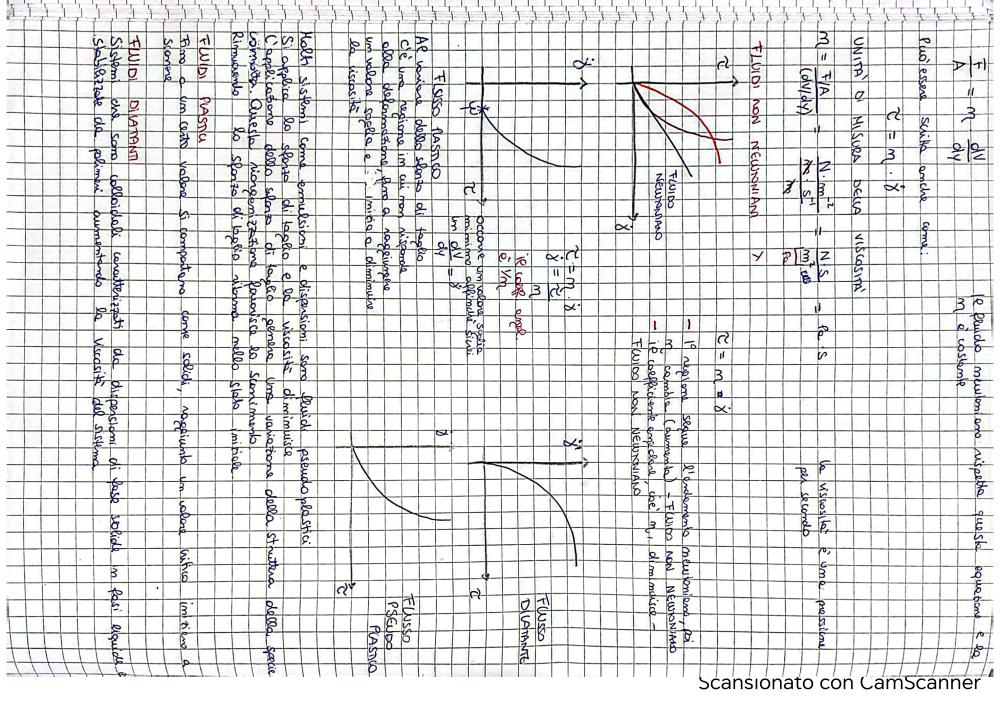 F/A = η dV/dy
il fluido newtoniano rispetta questa equazione e la
η è costante
Può essere scritta anche come:
τ = η · γ̇
UNITÀ DI MISURA DELLA VISCOSITÀ
η = F/A / (dV/dy) = N · m⁻² / s⁻¹ = N · s / m² = Pa · s
la viscosità è una pressione
per secondo
FLUIDI NON NEWTONIANI
τ
FLUIDO
NEWTONIANO
γ̇
τ = η = γ̇
- 1° regione segue l'andamento newtoniano, poi
η cambia (aumenta) - FLUIDO NON NEWTONIANO
- il coefficiente angolare, cioè η, diminuisce -
FLUIDO NON NEWTONIANO
γ̇
τ
τ = η · γ̇
γ̇ = τ/η
il coeff. angol.
è 1/η
Occorre un valore soglia
minimo affinché si crei
un dV/dy = γ̇
FLUSSO PLASTICO
γ̇
τ
FLUSSO
DILATANTE
Al variare dello sforzo di taglio
c'è una regione in cui non risponde
alla deformazione, fino a raggiungere
un valore soglia e inizia a diminuire
la viscosità
γ̇
τ
FLUSSO
PSEUDO
PLASTICO
Molti sistemi come emulsioni e dispersioni sono fluidi pseudoplastici
Si applica lo sforzo di taglio e la viscosità diminuisce
L'applicazione dello sforzo di taglio genera una variazione della struttura della specie
coinvolta. Questa riorganizzazione favorisce lo scorrimento
Rimuovendo lo sforzo di taglio ritorna nello stato iniziale
FLUIDI PLASTICI
Fino a un certo valore si comportano come solidi, raggiunto un valore critico iniziano a
scorrere
FLUIDI DILATANTI
Sistemi che sono colloidali caratterizzati da dispersioni di fase solide in fasi liquide e
stabilizzate da polimeri aumentando la viscosità del sistema
Scansionato con CamScanner